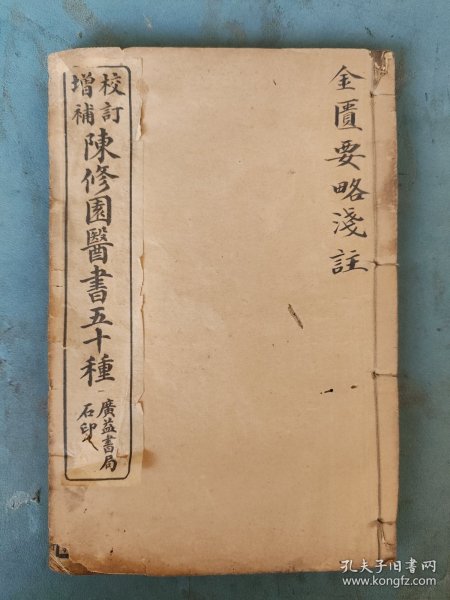 金匱要略淺註
校訂
增補
陳修園醫書五十種
廣益書局
石印
孔夫子旧书网
www.kongfz.com